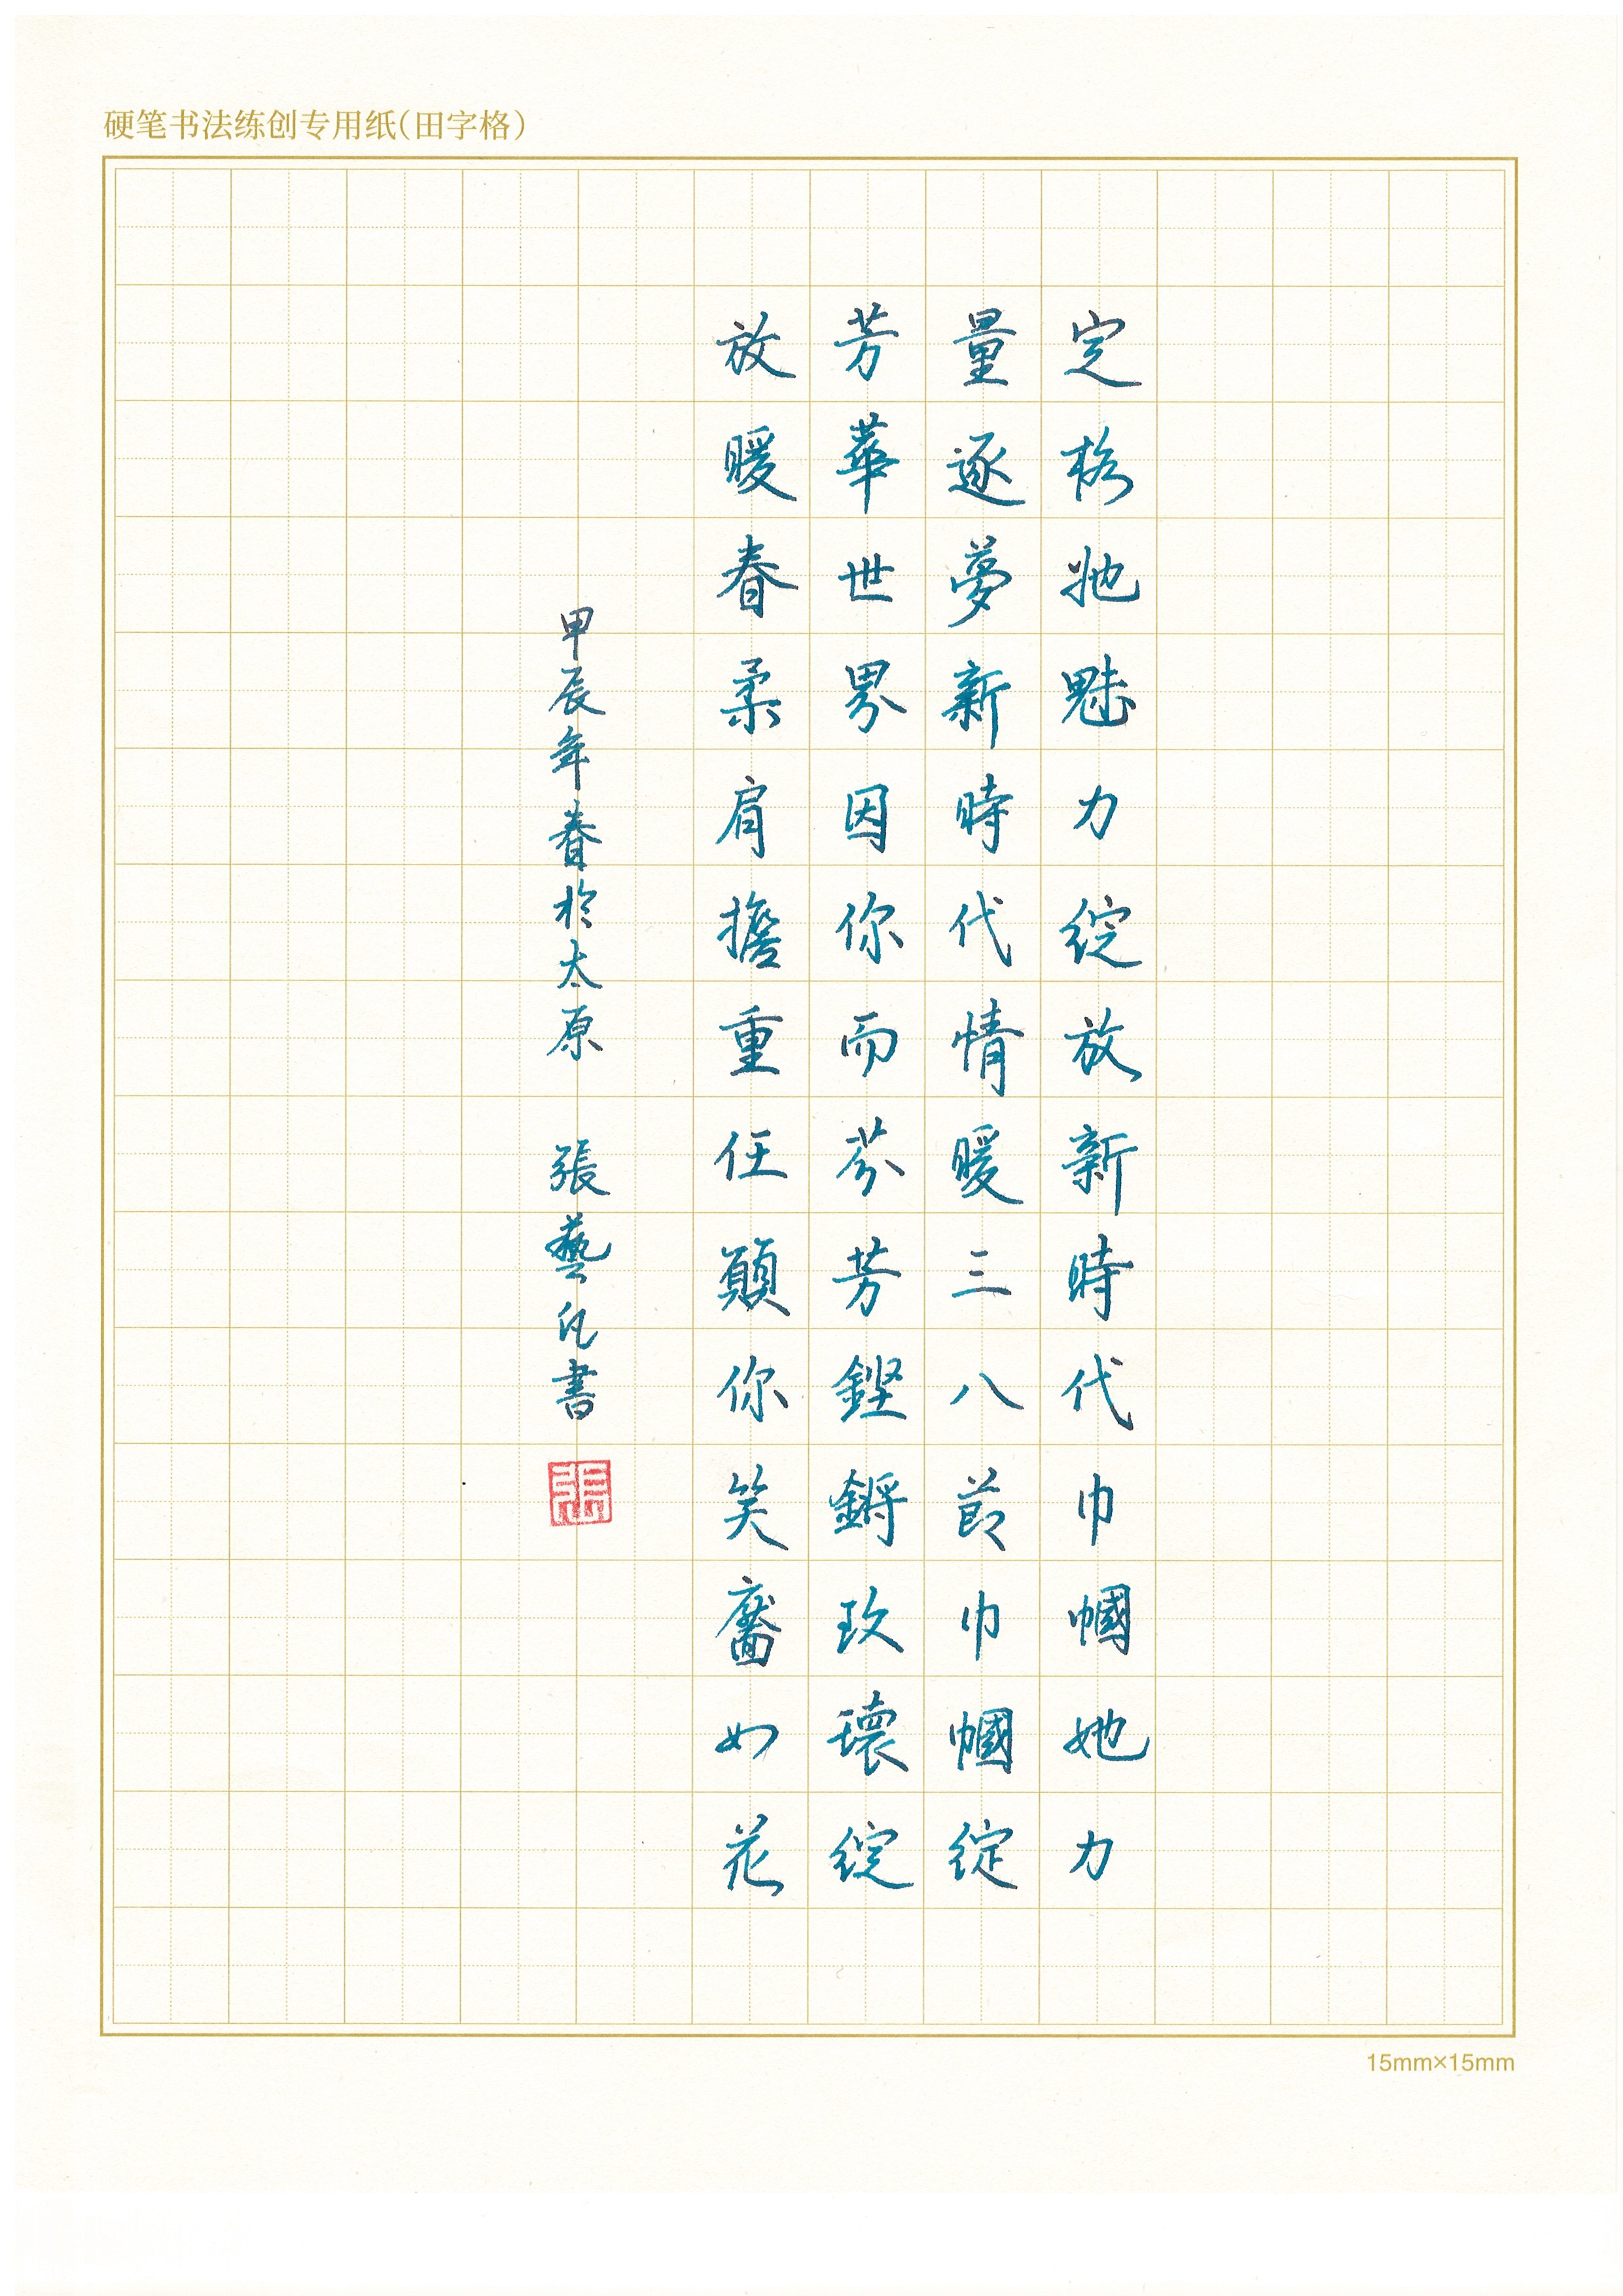 硬笔书法练创专用纸(田字格)
定格她魅力綻放新時代巾幗她力
量逐夢新時代情暖三八節巾幗綻
芳華世界因你而芬芳鏗鏘玫瓌綻
放暖春柔肩擔重任願你笑靨如花
甲辰年春於太原 張藝凡書
張
15mm×15mm